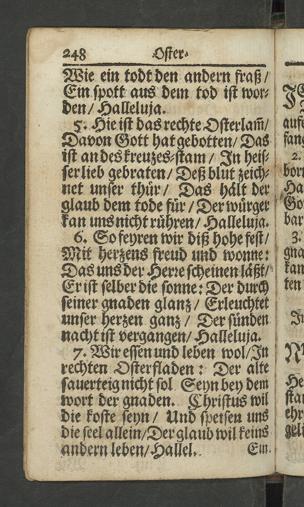 248 Oster-
Wie ein todt den andern fraß/
Ein spott aus dem tod ist wor-
den/ Halleluja.
5. Hie ist das rechte Osterlam̃/
Davon Gott hat gebotten/ Das
ist an des kreuzes-stam/ In heis-
ser lieb gebraten/ Deß blut zeich-
net unser thür/ Das hält der
glaub dem tode für/ Der würger
kan uns nicht rühren/ Halleluja.
6. So feyren wir diß hohe fest/
Mit herzens freud und wonne:
Das uns der Herre scheinen läßt/
Er ist selber die sonne: Der durch
seiner gnaden glanz/ Erleuchtet
unser herzen ganz/ Der sünden
nacht ist vergangen/ Halleluja.
7. Wir essen und leben wol/ In
rechten Osterfladen: Der alte
sauerteig nicht sol Seyn bey dem
wort der gnaden. Christus wil
die koste seyn/ Und speisen uns
die seel allein/ Der glaub wil keins
andern leben/ Hallel. Ein.
2.
3.